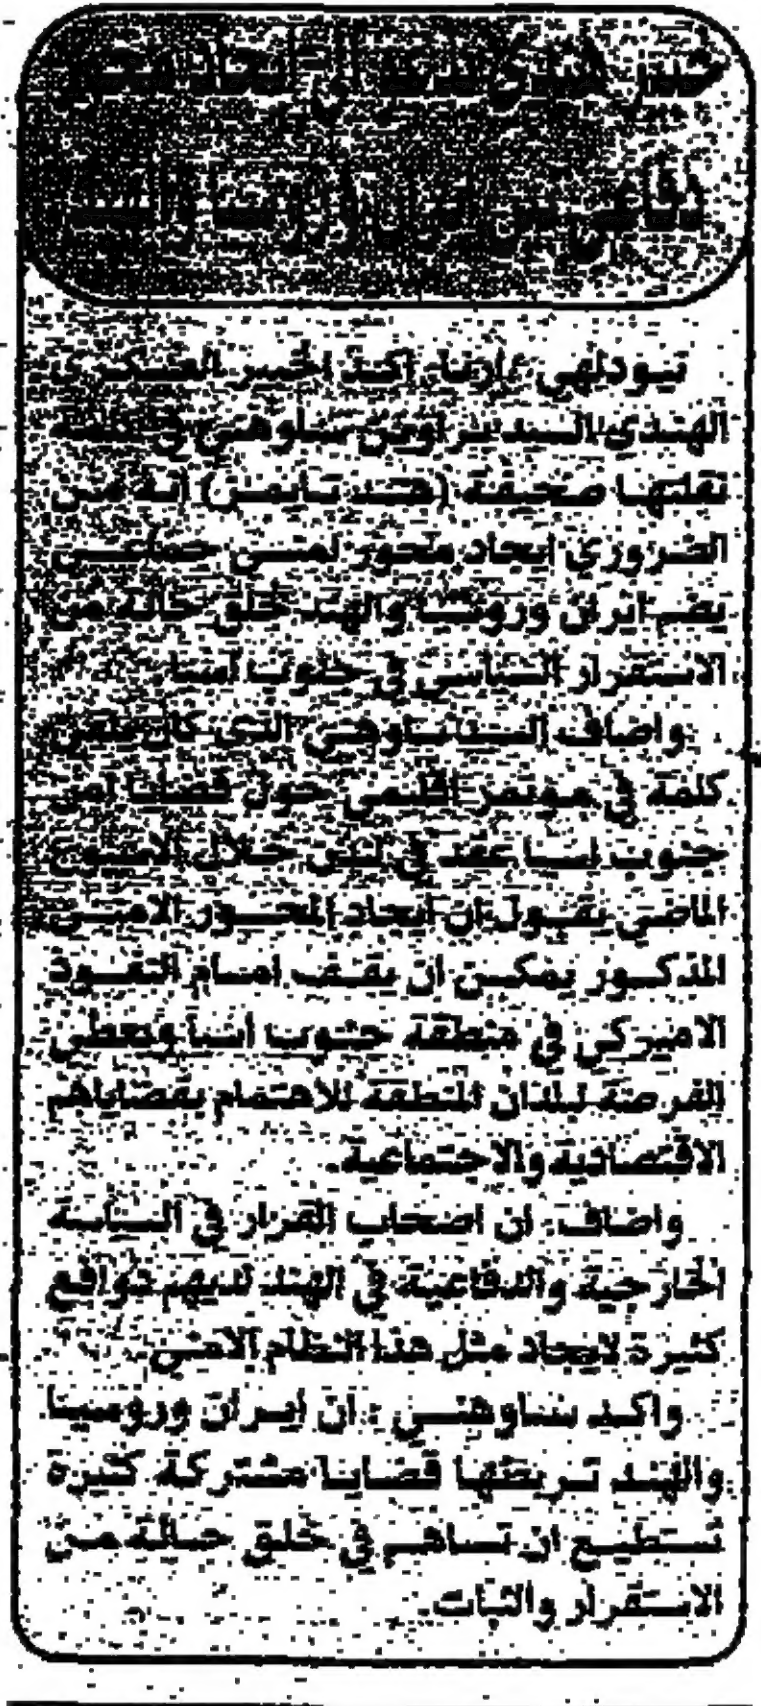 خبير هندي يدعو الى ايجاد محور
دفاعي بين ايران وروسيا والهند
نيودلهي ـ ارنا: اكد الخبير العسكري
الهندي السيد ساوهني في كلمة
نقلتها صحيفة (هند تايمز) انه من
الضروري ايجاد محور امني جماعي
يضم ايران وروسيا والهند لخلق حالة من
الاستقرار السياسي في جنوب اسيا.
واضاف السيد ساوهني الذي كان يلقي
كلمة في مؤتمر اقليمي حول قضايا امن
جنوب اسيا عقد في خلال الاسبوع
الماضي يقول ان ايجاد المحور الامني
المذكور يمكن ان يقف امام النفوذ
الاميركي في منطقة جنوب اسيا ويعطي
الفرصة لبلدان المنطقة للاهتمام بقضاياهم
الاقتصادية والاجتماعية.
واضاف: ان اصحاب القرار في السياسة
الخارجية والدفاعية في الهند لديهم دوافع
كثيرة لايجاد مثل هذا النظام الامني.
واكد ساوهني: ان ايران وروسيا
والهند تربطها قضايا مشتركة كثيرة
تستطيع ان تساهم في خلق حالة من
الاستقرار والثبات.